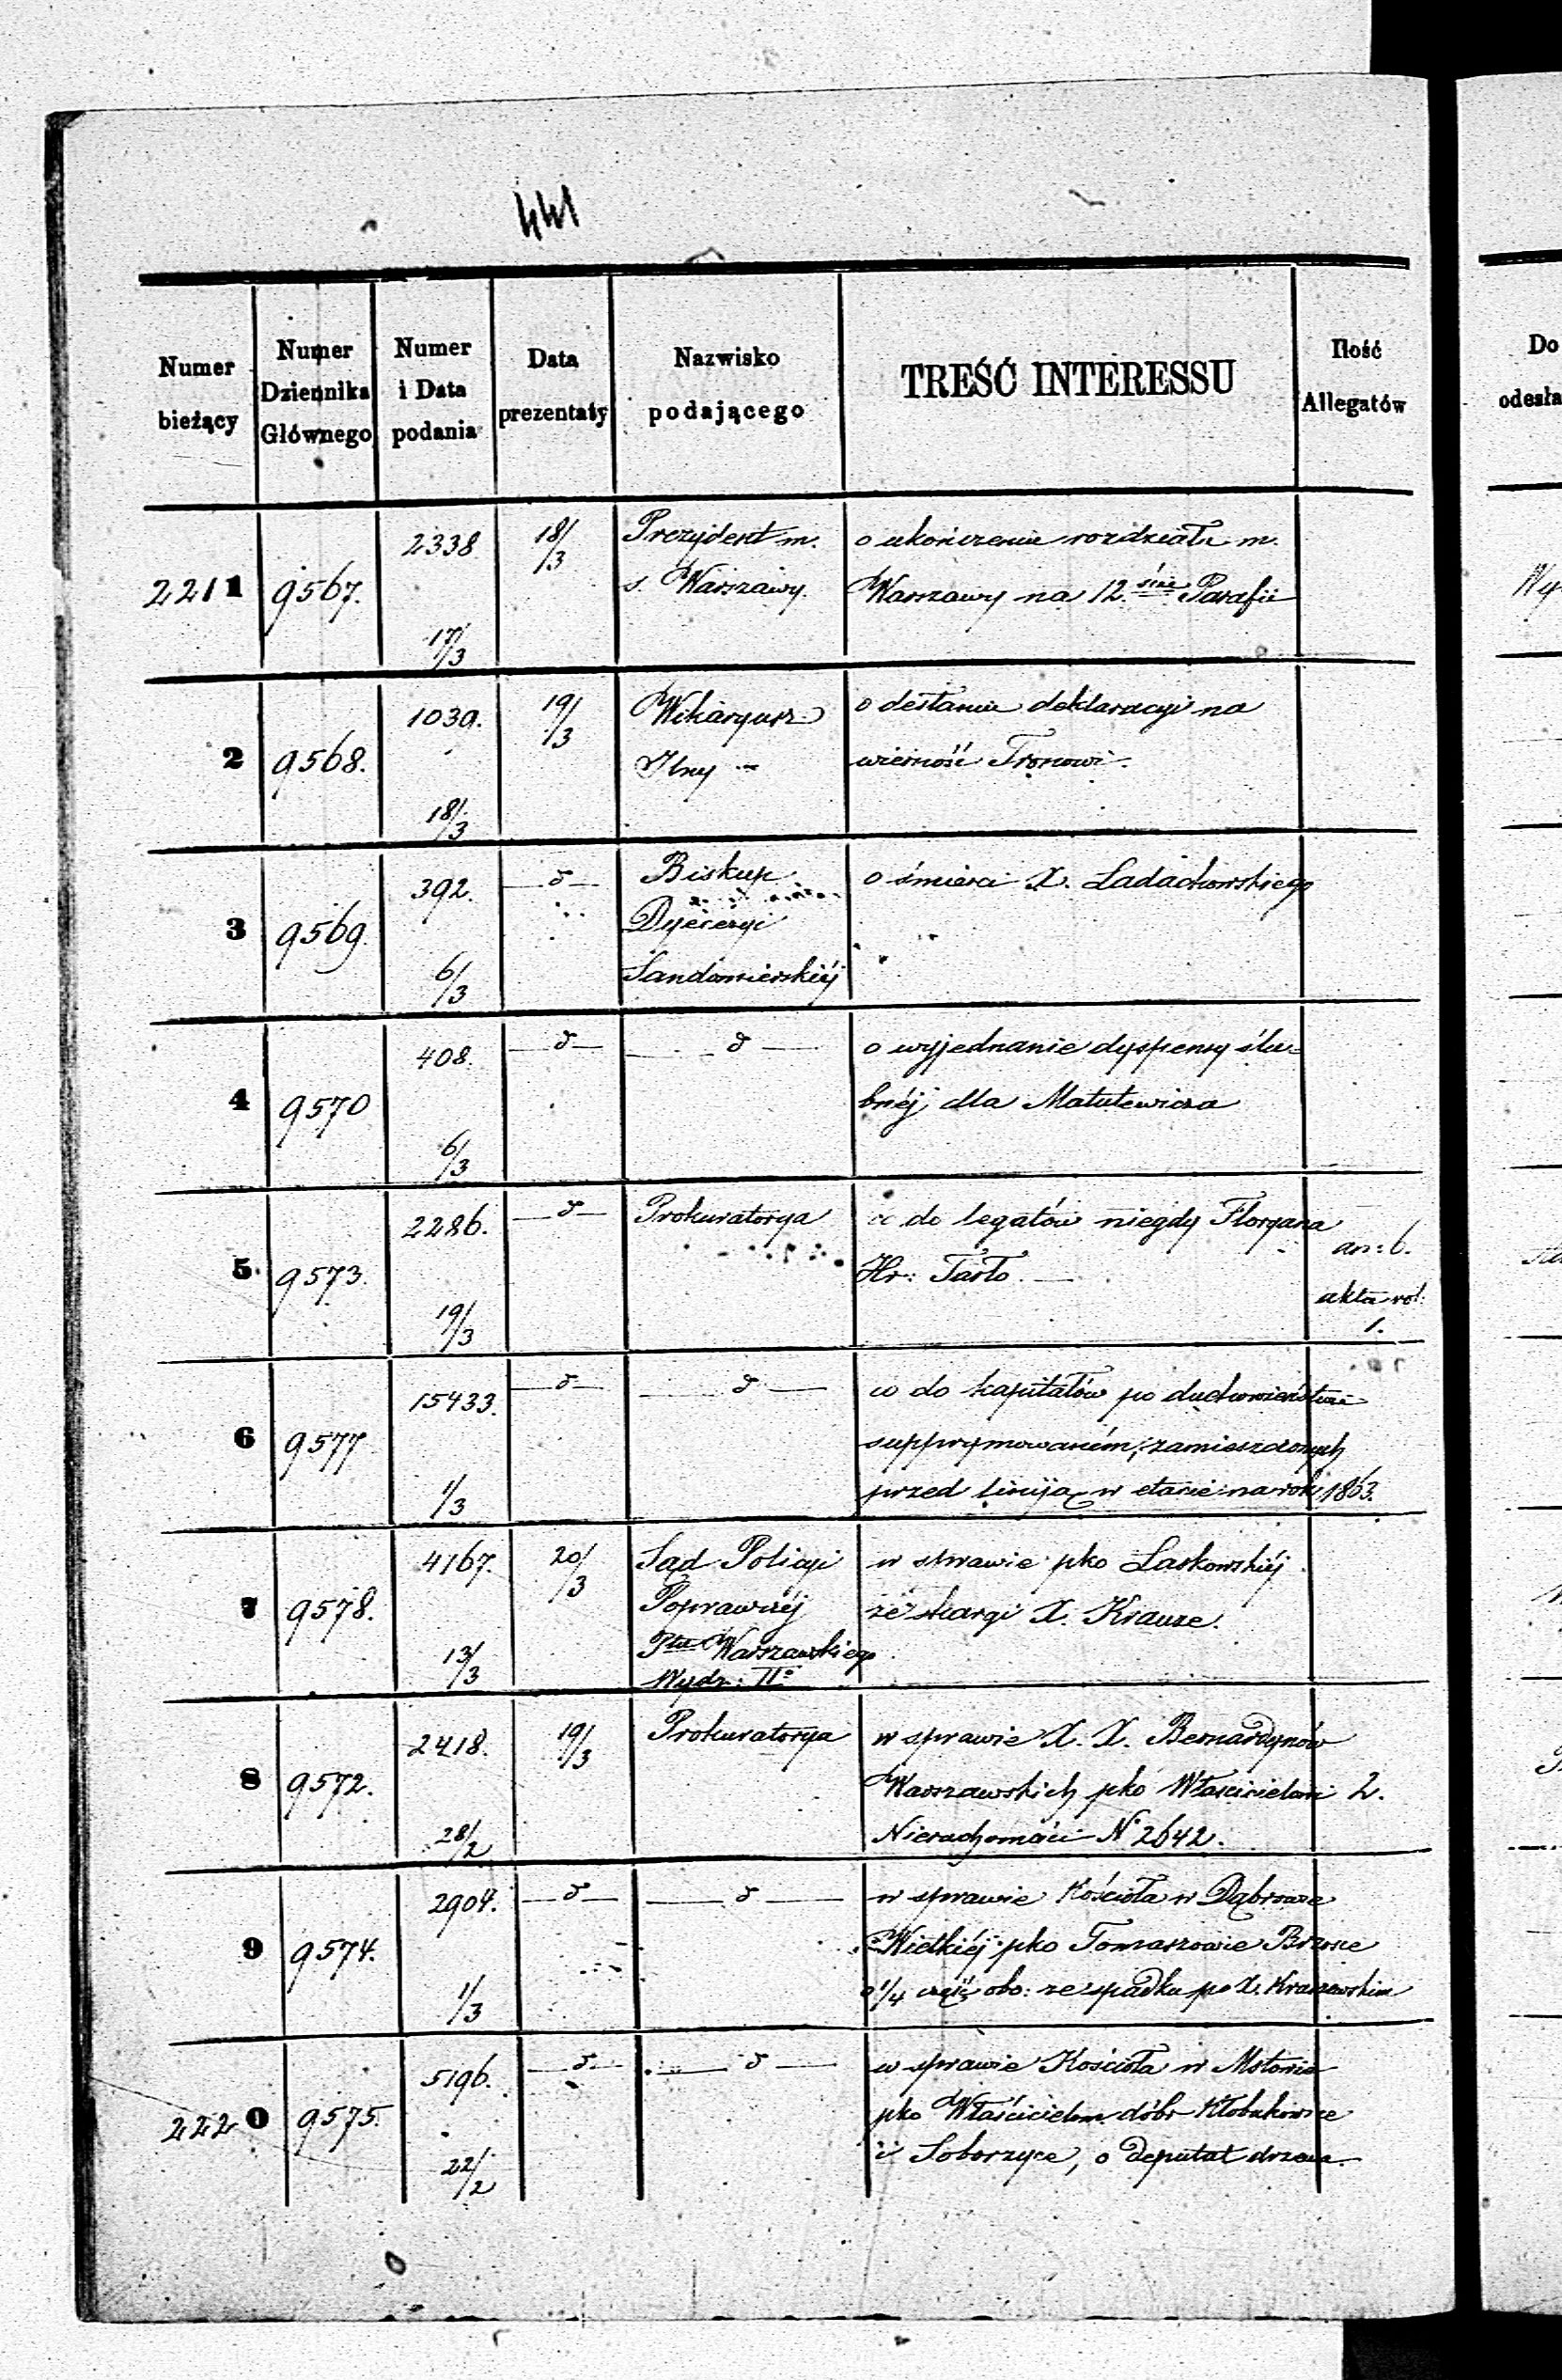 441
Numer bieżący
Numer Dziennika Głównego
Numer i Data podania
Data prezentaty
Nazwisko podającego
TREŚĆ INTERESSU
Ilość Allegatów
Do odesła
2211 9567. 2338 17/3 18/3
Prezydent m.
s. Warszawy.
o ukończenie rozdziału m.
Warszawy na 12.ście Parafii
2 9568. 1039. 18/3 19/3
Wikaryusz
Jlny
o desłanie deklaracyi na
wierność Tronowi.
3 9569. 392. 6/3 —d—
Biskup
Dyecezyi
Sandomierskiéj
o śmierci X. Ladachowskiego
4 9570 408. 6/3 —d— —d—
o wyjednanie dyspensy ślu=
bnéj dla Matutewicza
5. 9573. 2286. 19/3 —d—
Prokuratorya
co do legatów niegdy Floryana
Hr: Tarło.
an: 6.
akta vol:
1.
6 9577 15433. 1/3 —d— —d—
co do kapitałów po duchowieństwie
supprymowaném, zamieszczonych
przed liniją w etacie na rok 1863.
7 9578. 4167. 13/3 20/3
Sąd Policyi
Poprawczéj
Ptu Warszawskiego
Wydz: IIo
w sprawie pko Laskowskiéj
ze skargi X. Krauze.
8 9572. 2418. 28/2 19/3
Prokuratorya
w sprawie X. X. Bernardynów
Warszawskich pko Właścicielowi
Nieruchomości N 2642.
2.
9 9574. 2904. 1/3 —d— —d—
w sprawie Kościoła w Dąbrowie
Wielkiéj pko Tomaszowie Brzosce
o 1/4 część obo: ze spadku po X. Kraszewskim
2220 9575. 5196. 22/2 —d— —d—
w sprawie Kościoła w Mstowie
pko Właścicielom dóbr Kłobukowice
i Soborzyce, o deputat drzewa.